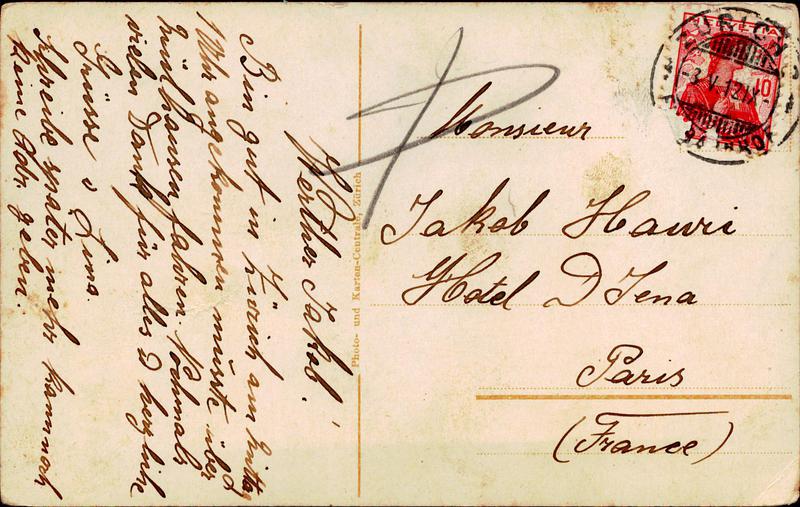 Werther Jakob!
Bin gut in Zürich am Mittag
1 Uhr angekommen musste über
Mülhausen fahren. Nochmals
vielen Dank für alles & herzliche
Grüsse v Lina.
Schreibe später mehr kann noch
keine Adr. geben.
Photo- und Karten-Centrale, Zürich
Monsieur
Jakob Hauri
Hotel D Jena
Paris
(France)
HELVETIA
10
ZÜRICH
BAHNHOF